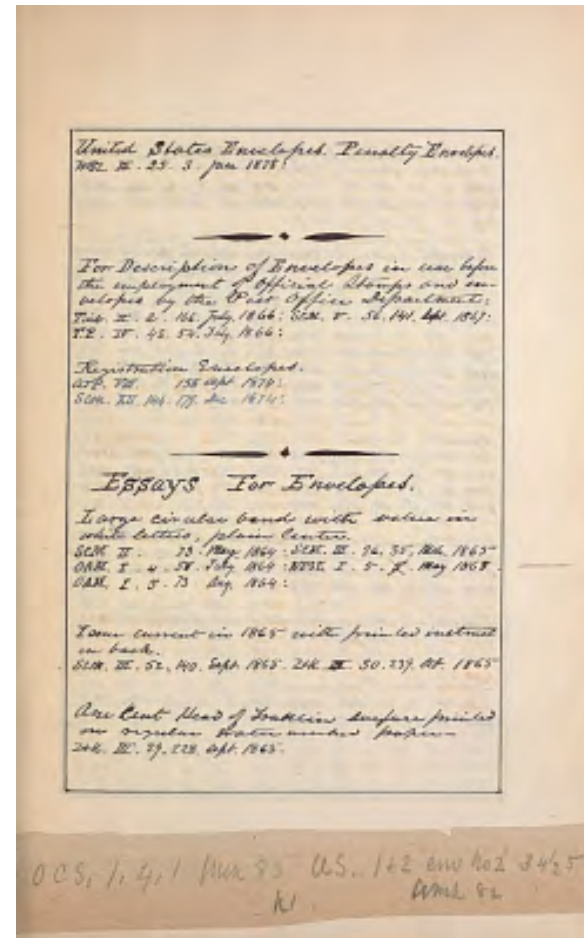 United States Envelopes. Penalty Envelopes.
III. 25. 3. Jan 1878:
For Description of Envelopes in use before
the employment of Official Stamps and en-
velopes by the Post Office Department:
II. 2. 166. July. 1866: SCM. V. 56. 141. Sept. 1867:
T.P. IV. 45. 54. July. 1866:
Registration Envelopes.
VIII. 158 Sept 1874:
SCM. XII. 144. 179. Dec. 1874:
Essays For Envelopes.
Large circular band with value in
white letters, plain Centre.
SCM. II. 73. May. 1864: SCM. III. 26, 35, Feb. 1865
OAM. I. 4. 58. July. 1864: I. 5. May 1868.
OAM. I. 5. 73 Aug. 1864:
Same current in 1865 with printed
on back.
SCM. III. 52, 140. Sept. 1865. 30. 239. Oct. 1865
One Cent Head of Franklin surface printed
on regular water marked paper.
III. 29. 228. Sept. 1865.
OCS, 1, 4, 1 83 U.S. 1+2 env No2 3 4 5
82